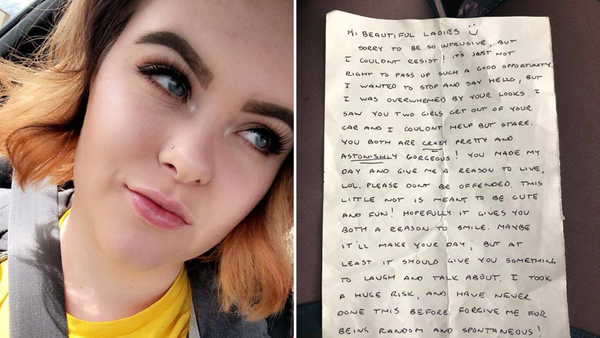 HI BEAUTIFUL LADIES
SORRY TO BE SO INTRUSIVE, BUT
I COULDNT RESIST! IT'S JUST NOT
RIGHT TO PASS UP SUCH A GOOD OPPORTUNITY.
I WANTED TO STOP AND SAY HELLO, BUT
I WAS OVERWHEMED BY YOUR LOOKS. I
SAW YOU TWO GIRLS GET OUT OF YOUR
CAR AND I COULDNT HELP BUT STARE.
YOU BOTH ARE CRAZY PRETTY AND
ASTONISHLY GORGEOUS! YOU MADE MY
DAY AND GIVE ME A REASON TO LIVE,
LOL. PLEASE DONT BE OFFENDED. THIS
LITTLE NOT IS MEANT TO BE CUTE
AND FUN! HOPEFULLY IT GIVES YOU
BOTH A REASON TO SMILE. MAYBE
IT'LL MAKE YOUR DAY, BUT AT
LEAST IT SHOULD GIVE YOU SOMETHING
TO LAUGH AND TALK ABOUT. I TOOK
A HUGE RISK, AND HAVE NEVER
DONE THIS BEFORE. FORGIVE ME FOR
BEING RANDOM AND SPONTANEOUS!